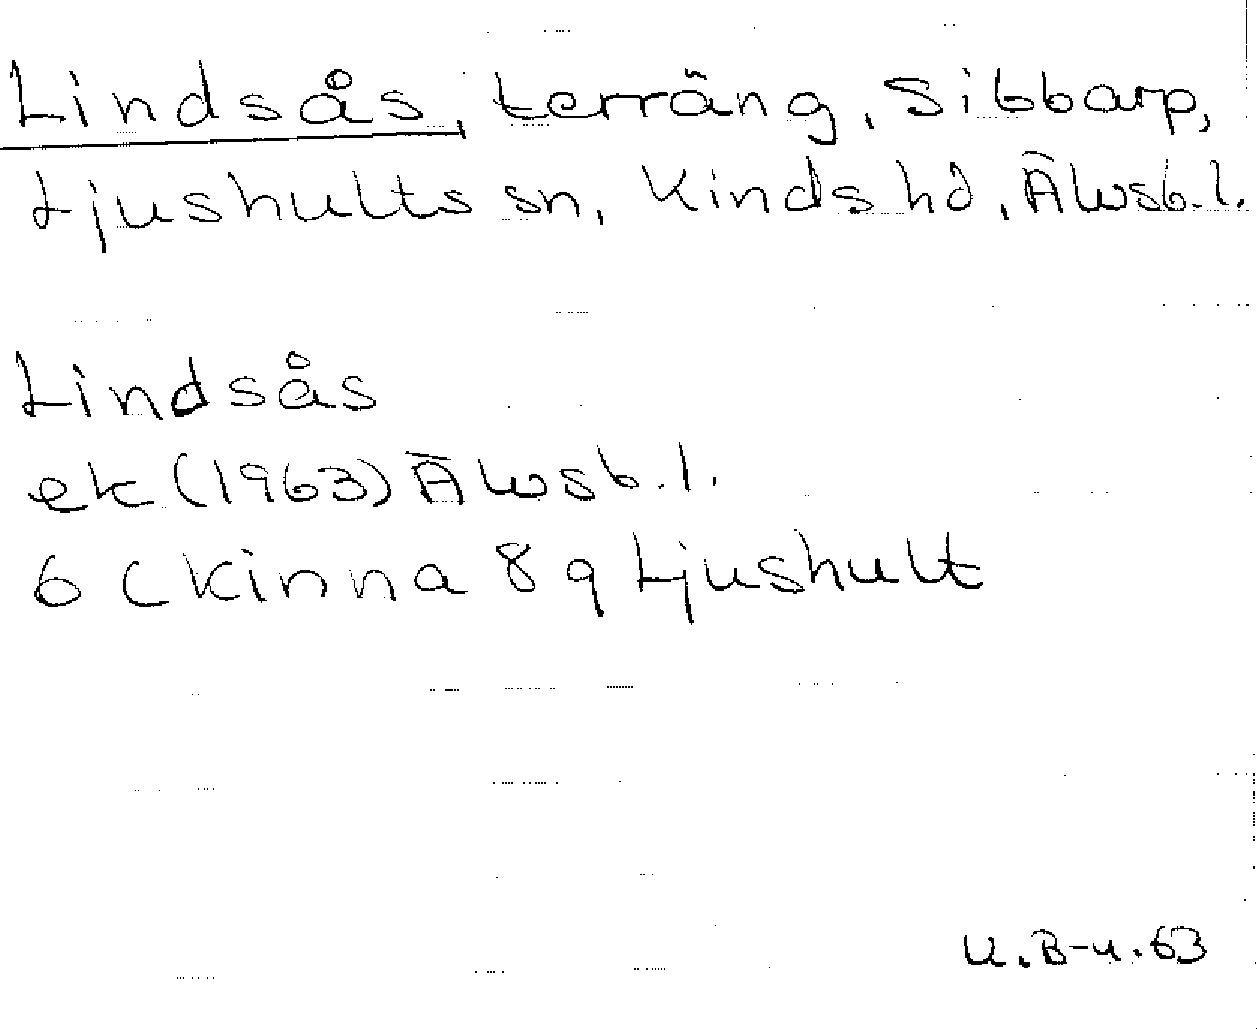 Lindsås, terräng, Sibbarp,
Ljushults sn, Kinds hd, Älvsb. l.
Lindsås
ek (1963) Älvsb. l.
6 C Kinna 8 g Ljushult
U. B-n. 63